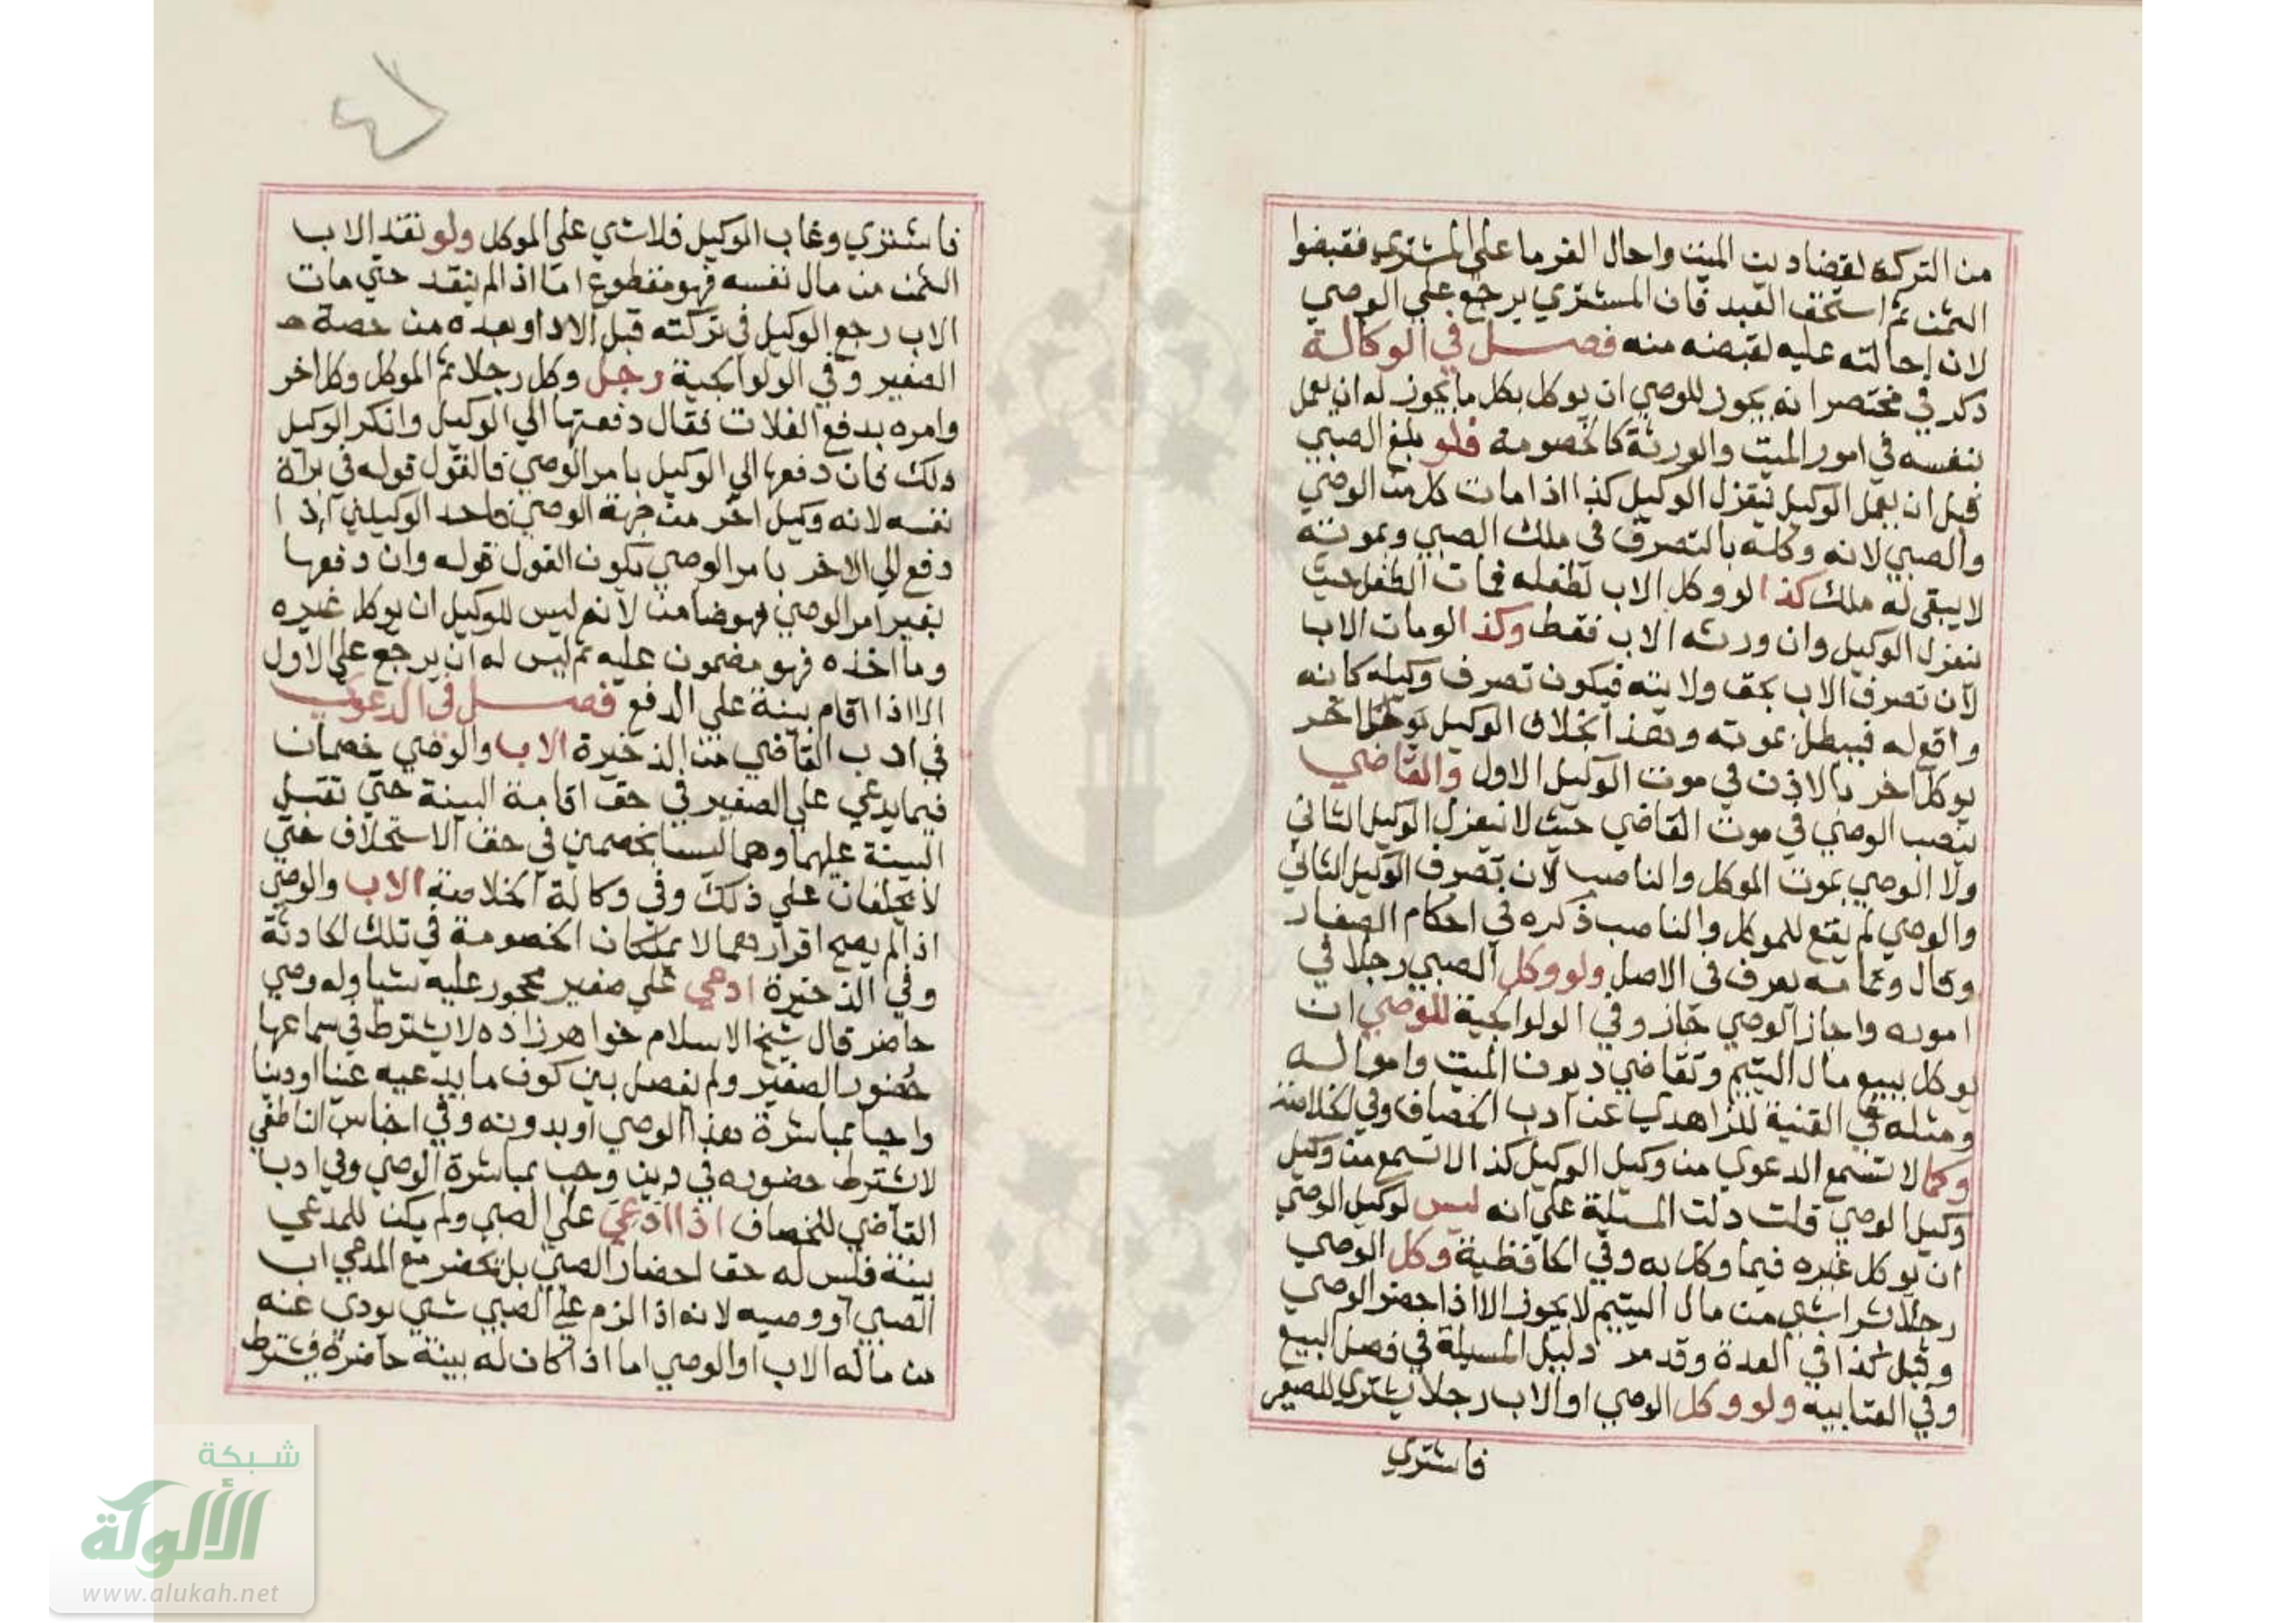 من التركة لقضا دين الميت واحال الغرما على المشتري فقبضوا
الثمن ثم استحق العبد فان المشتري يرجع على الوصي
لان إحالته عليه لقبضه منه فصل في الوكالة
ذكر في مختصر انه يجوز للوصي ان يوكل بكل ما يجوز له ان يعمل
بنفسه في امور الميت والورثة كالخصومة فلو بلغ الصبي
قبل ان يعمل الوكيل ينعزل الوكيل كذا اذا مات كل من الوصي
والصبي لانه وكله بالتصرف في ملك الصبي وبموته
لا يبقى له ملك كذا لو وكل الاب لطفله فمات الطفل حيث
ينعزل الوكيل وان ورثه الاب فقط وكذا لو مات الاب
لان تصرف الاب بحق ولايته فيكون تصرف وكيله كانه
واقع له فيبطل بموته وهذا بخلاف الوكيل يوكل اخر
يوكل اخر بالاذن في موت الوكيل الاول والقاضي
ينصب الوصي في موت القاضي حيث لا ينعزل الوكيل الثاني
ولا الوصي بموت الموكل والناصب لان تصرف الوكيل الثاني
والوصي لم يقع للموكل والناصب ذكره في احكام الصغار
وقال وتمامه يعرف في الاصل ولو وكل الصبي رجلا في
اموره واجاز الوصي جاز وفي الولوالجية للوصي ان
يوكل ببيع مال اليتيم وتقاضي ديون الميت وامواله
ومثله في القنية للزاهدي عن ادب الخصاف وفي الخلاصة
وكما لا تسمع الدعوي من وكيل الوكيل كذا لا تسمع من وكيل
وكيل الوصي قلت دلت المسئلة على انه ليس لوكيل الوصي
ان يوكل غيره فيما وكل به وفي الحافظية وكل الوصي
رجلا بشرا شي من مال اليتيم لا يجوز الا اذا حضر الوصي
وقيل كذا في العدة وقد مر دليل المسيلة في فصل البيع
وفي العتابيه ولو وكل الوصي او الاب رجلا يشتري للصغير
فاشتري
فاشتري وغاب الوكيل فلا شي على الموكل ولو نقد الاب
الثمن من مال نفسه فهو متطوع اما اذا لم ينقد حتي مات
الاب رجع الوكيل في تركته قبل الادا وبعده من حصة
الصغير وفي الولوالجية رجل وكل رجلا ثم الموكل وكل اخر
وامره بدفع الغلات فقال دفعتها الي الوكيل وانكر الوكيل
ذلك فان دفعها الي الوكيل بامر الوصي فالقول قوله في براة
نفسه لانه وكيل اخر من جهة الوصي واحد الوكيلين اذا
دفع الي الاخر بامر الوصي يكون القول قوله وان دفعها
بغير امر الوصي فهو ضامن لانه ليس للوكيل ان يوكل غيره
وما اخذه فهو مضمون عليه ثم ليس له ان يرجع على الاول
الا اذا اقام بينة على الدفع فصل في الدعوي
في ادب القاضي من الذخيرة الاب والوصي خصمان
فيما يدعي على الصغير في حق اقامة البينة حتي تقبل
البينة عليهما وهما ليسا بخصمين في حق الاستحلاف حتي
لا يحلفان على ذلك وفي وكالة الخلاصة الاب والوصي
اذا لم يصح اقرارهما لا يملكان الخصومة في تلك الحادثة
وفي الذخيرة ادعي على صغير محجور عليه شيا وله وصي
حاضر قال شيخ الاسلام خواهر زاده لا يشترط في سماعها
حضور الصغير ولم يفصل بين كون ما يدعيه عينا او دينا
واجبا بمباشرة هذا الوصي او بدونه وفي اجناس الناطفي
لا يشترط حضوره في دين وجب بمباشرة الوصي وفي ادب
القاضي للخصاف اذا ادعي على الصبي ولم يكن للمدعي
بينة فليس له حق احضار الصبي بل يحضر مع المدعي اب
الصبي او وصيه لانه اذا الزم على الصبي شي يودي عنه
من ماله الاب او الوصي اما اذا كان له بينة حاضرة فيشترط
شبكة
الألوكة
www.alukah.net